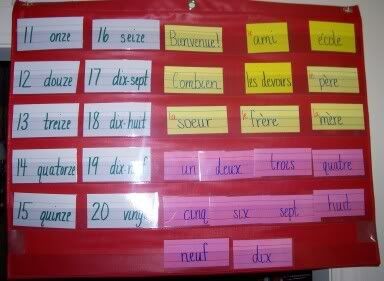 11 onze 16 seize Bienvenue! ami école
12 douze 17 dix-sept Combien les devoirs le père
13 treize 18 dix-huit la soeur le frère la mère
14 quatorze 19 dix-neuf un deux trois quatre
15 quinze 20 vingt cinq six sept huit
neuf dix